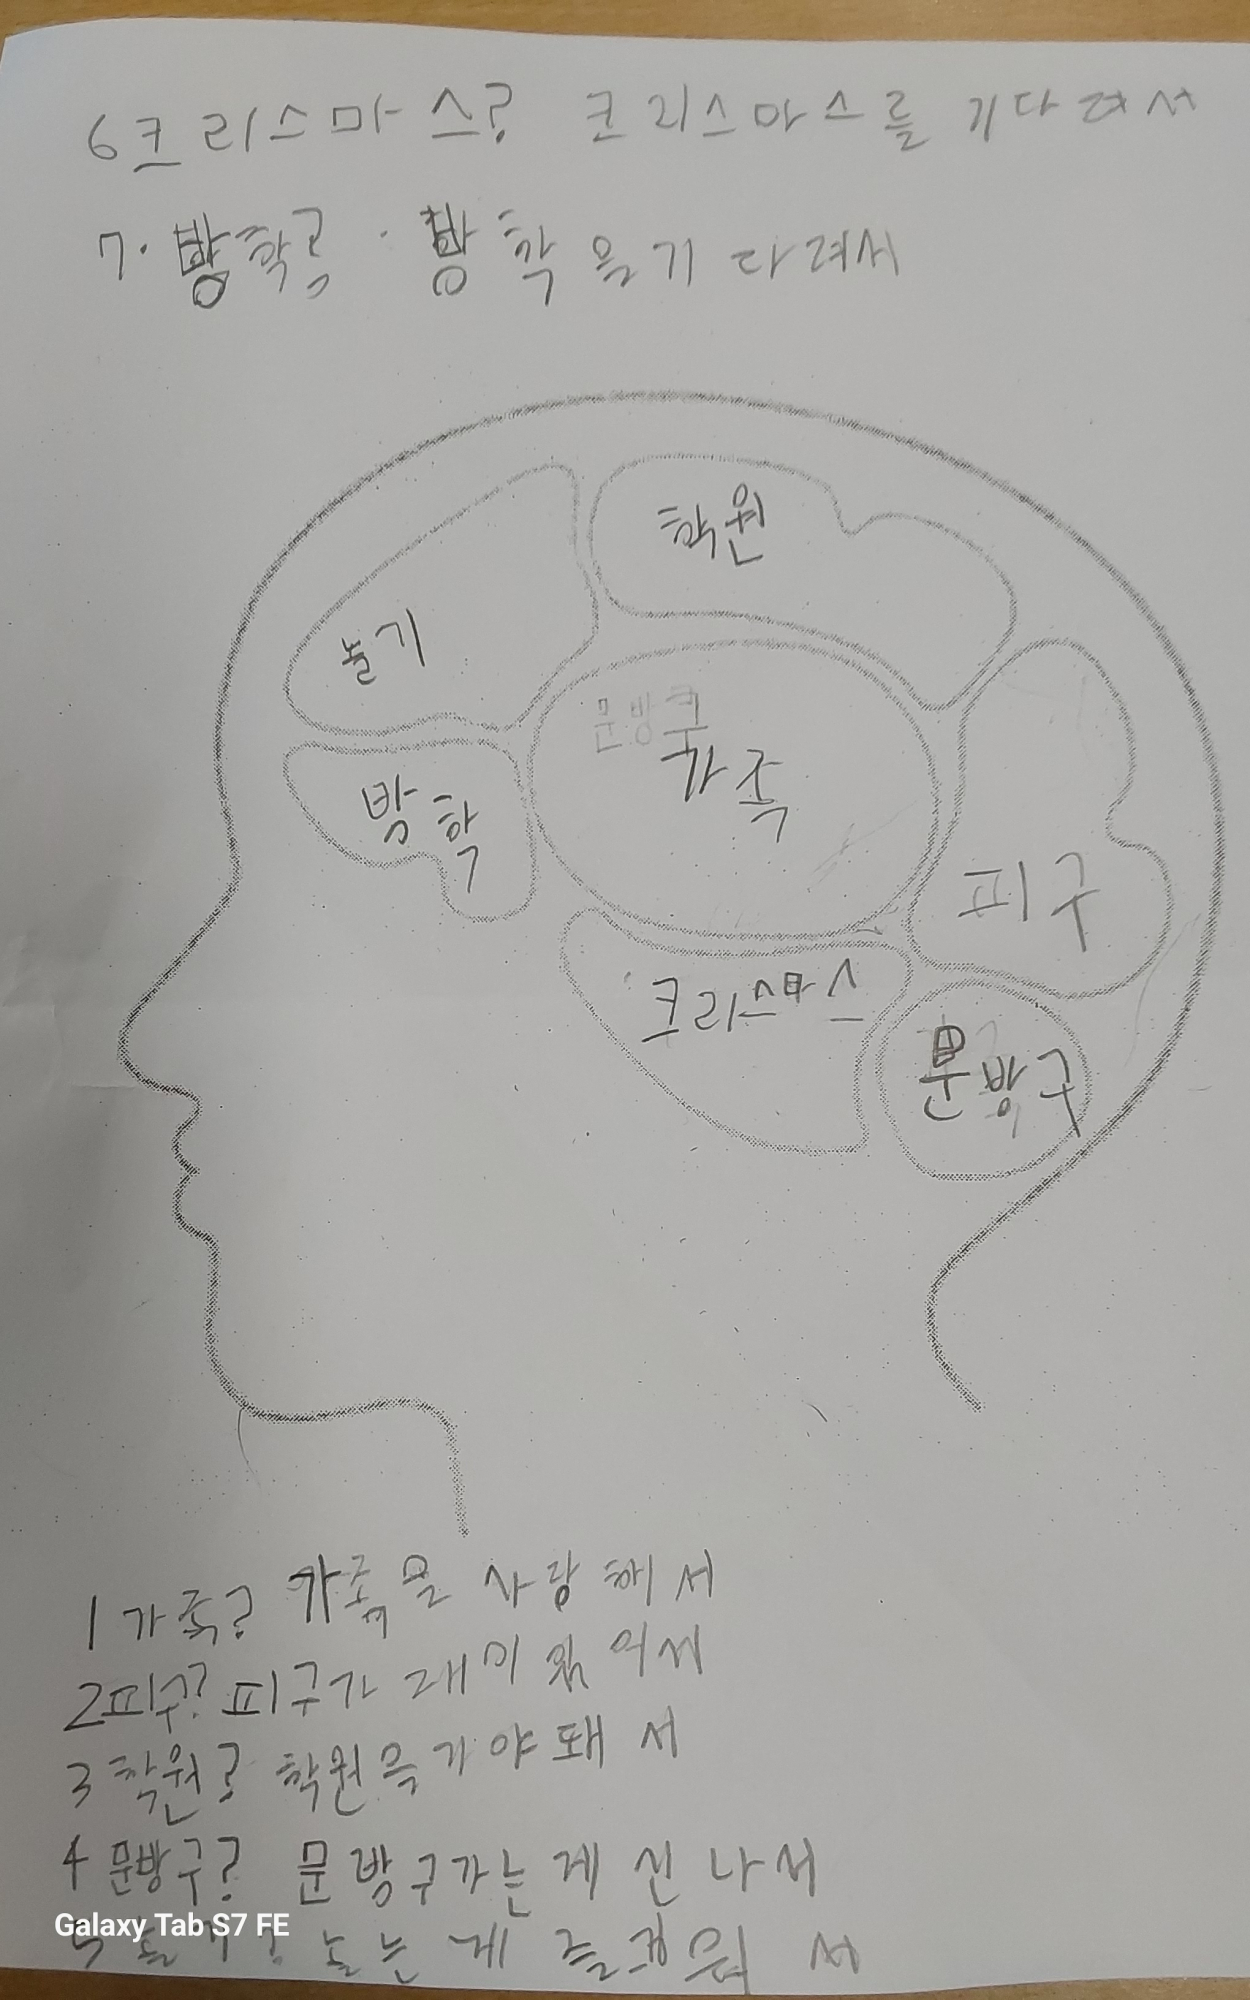 6크리스마스? 크리스마스를 기다려서
7. 방학? 방학을기다려서
학원
놀기
문방구
가족
방학
피구
크리스마스
문방구
1 가족? 가족을 사랑해서
2피구? 피구가 재미있어서
3 학원? 학원을가야돼서
4 문방구? 문방구가는게 신나서
Galaxy Tab S7 FE
5 놀기? 노는게 즐거워서